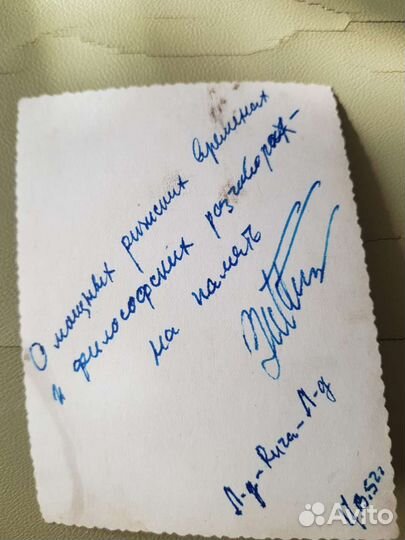 О мощных рижских временах
и философских разговорах -
на память
Л-д-Рига-Л-д
Avito